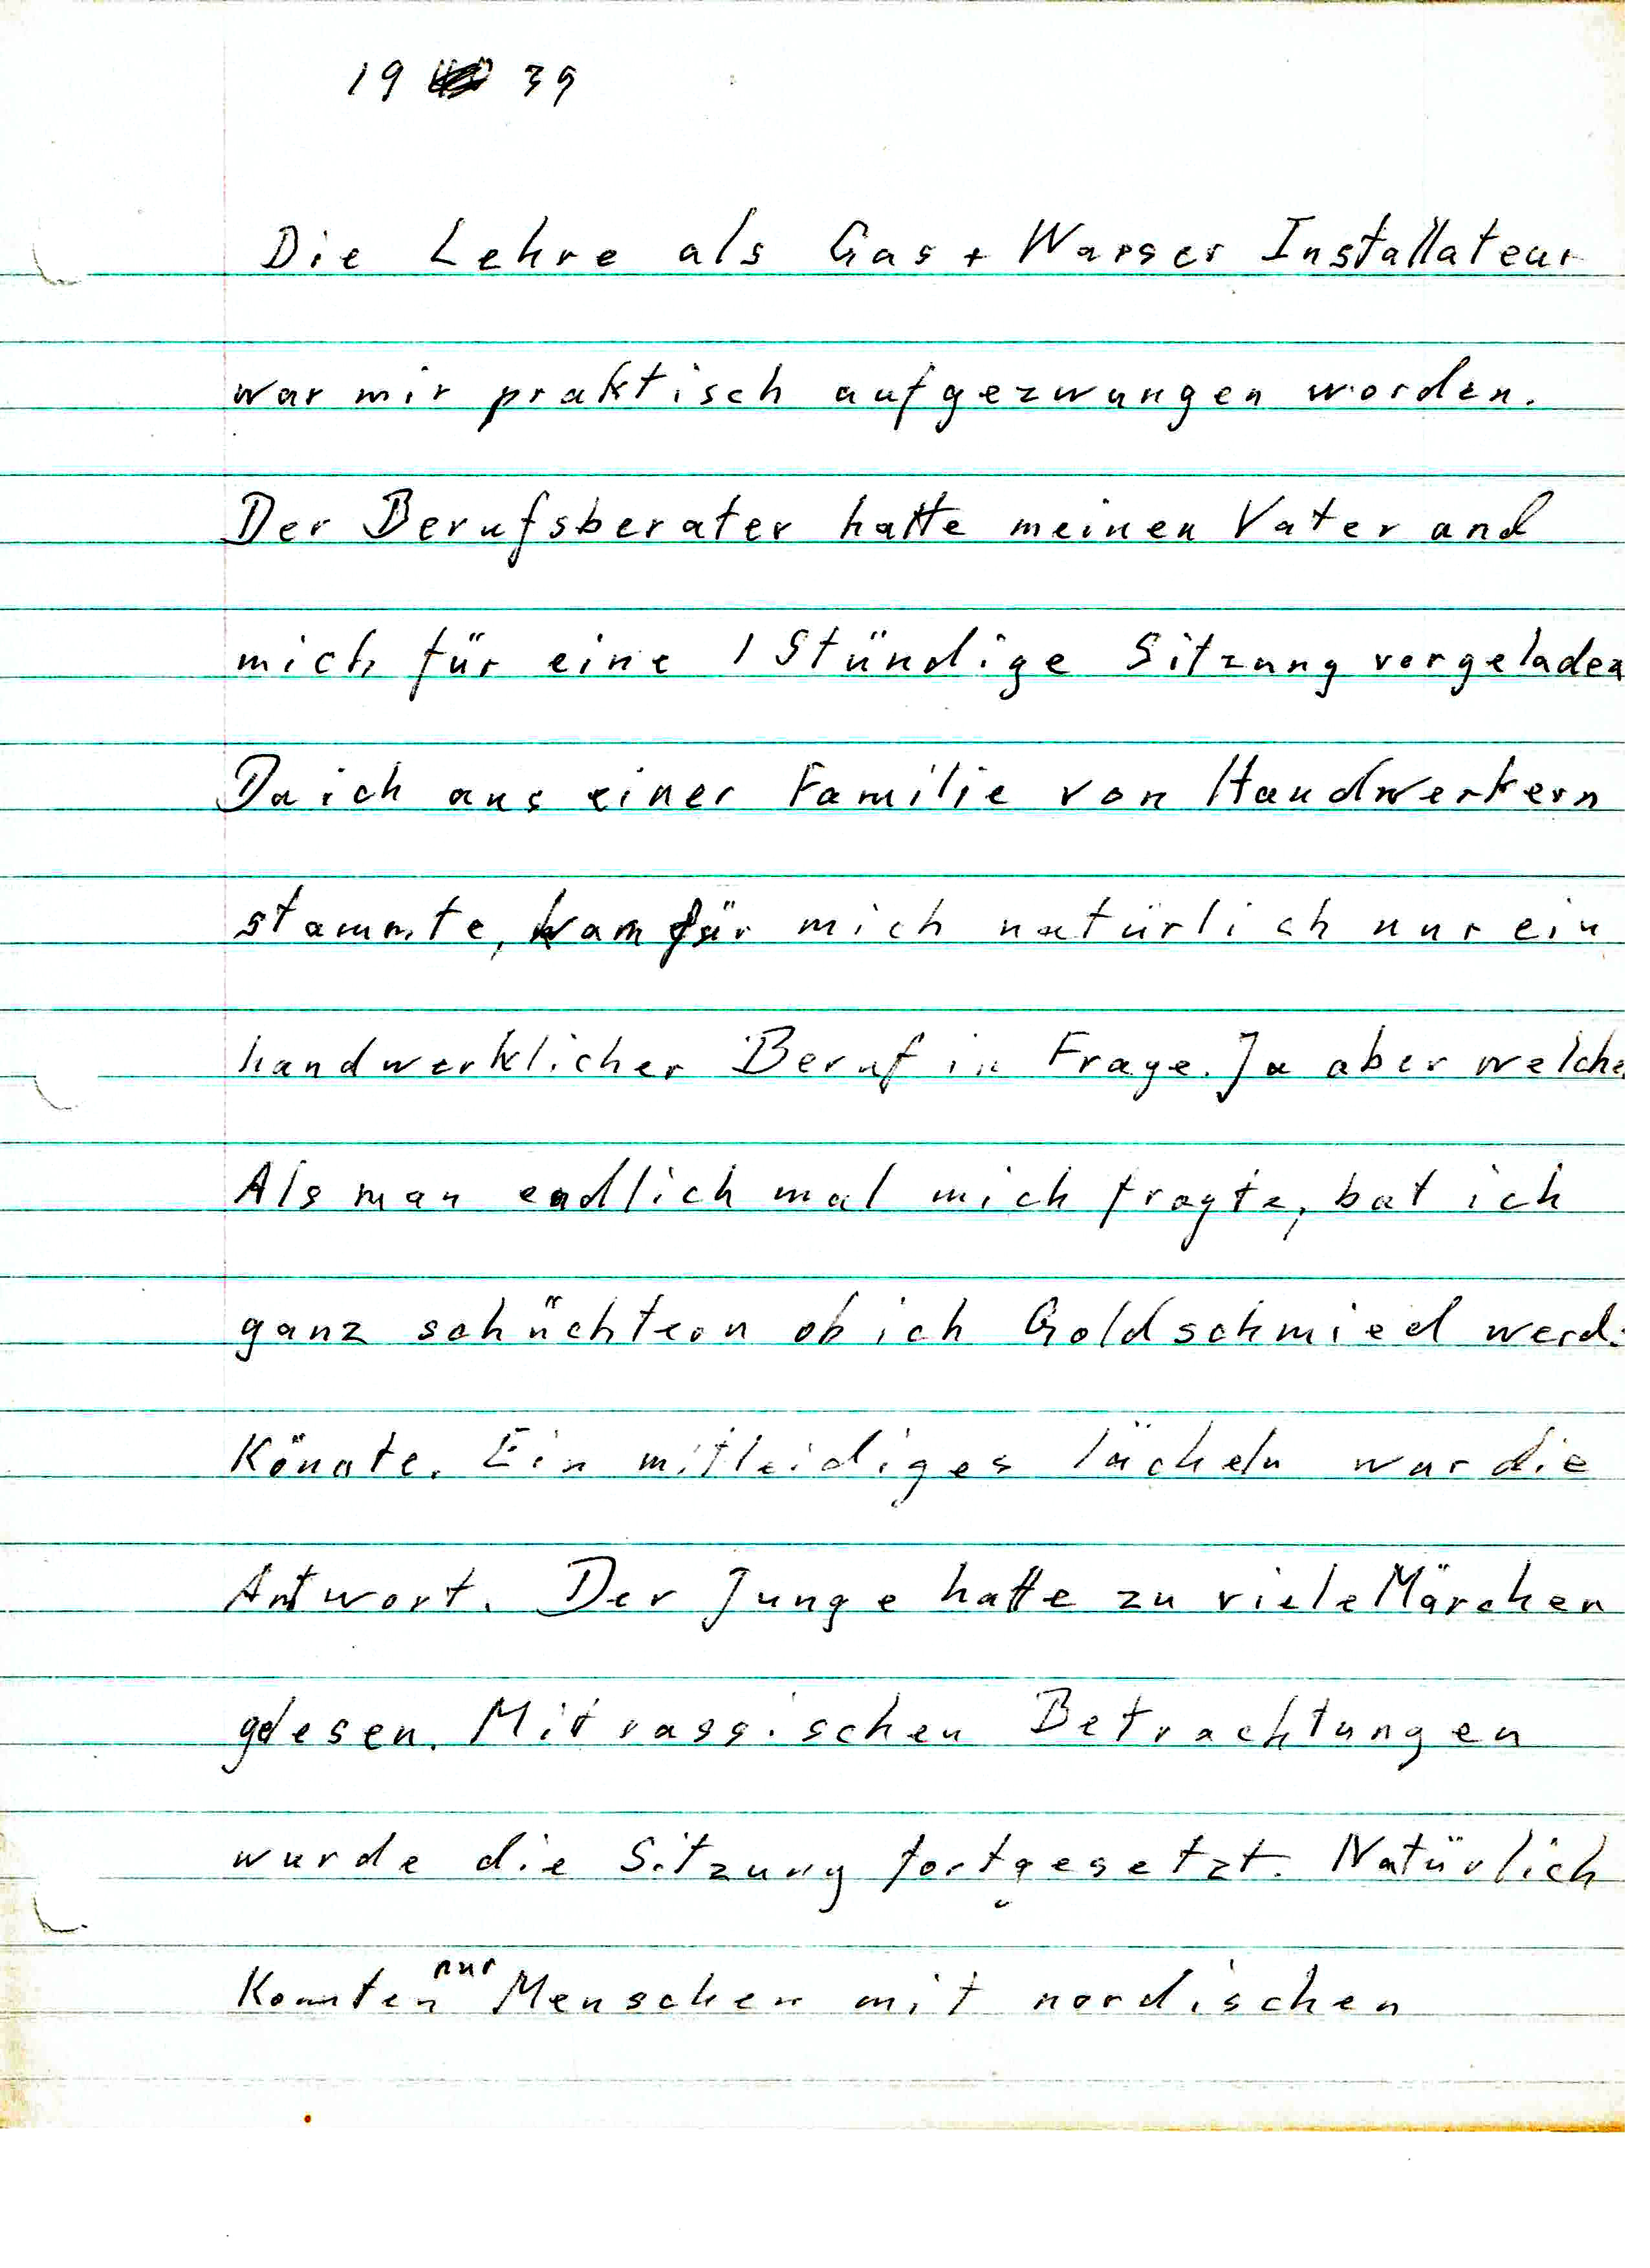 19 39
Die Lehre als Gas + Wasser Installateur
war mir praktisch aufgezwungen worden.
Der Berufsberater hatte meinen Vater und
mich für eine 1 Stündige Sitzung vorgeladen
Da ich aus einer Familie von Handwerkern
stammte, kam für mich natürlich nur ein
handwerklicher Beruf in Frage. Ja aber welche
Als man endlich mal mich fragte, bat ich
ganz schüchtern ob ich Goldschmied werd
Könnte. Ein mitleidiges lächeln war die
Antwort. Der Junge hatte zu viele Märchen
gelesen. Mit rassischen Betrachtungen
wurde die Sitzung fortgesetzt. Natürlich
Konnten nur Menschen mit nordischen